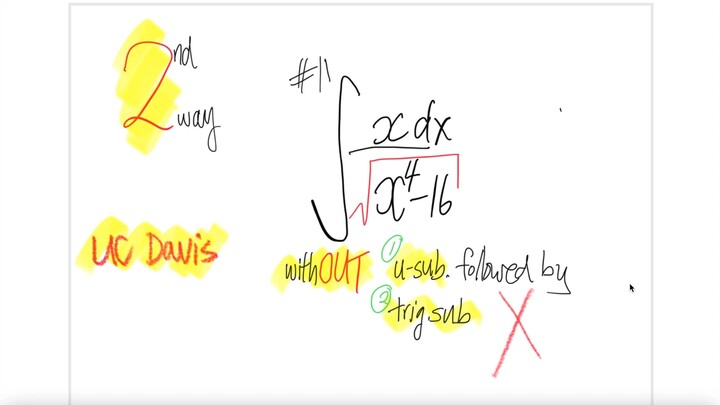 2nd way
#11
∫ x dx / √(x⁴-16)
UC Davis
withOUT ① u-sub. followed by
② trig sub X